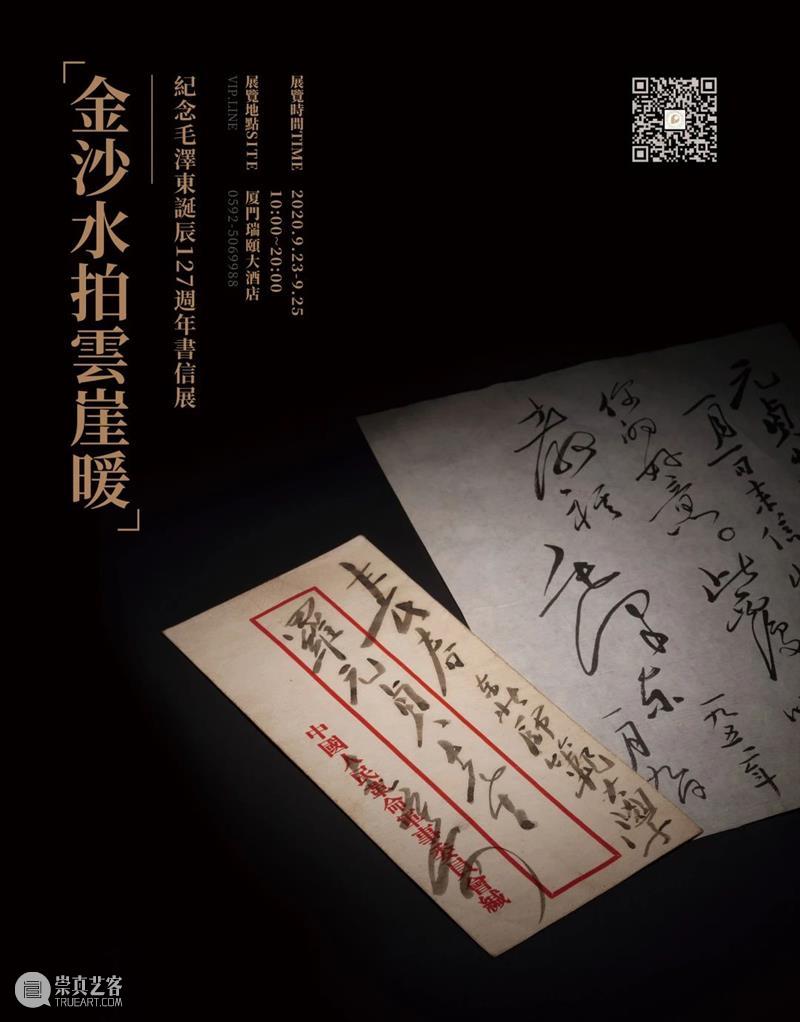 「金沙水拍雲崖暖」
紀念毛澤東誕辰127週年書信展
展覽時間TIME 2020.9.23-9.25
10:00~20:00
展覽地點SITE 厦門瑞頤大酒店
VIP.LINE 0592-5069988
元貞
一月一日来信
你的好意。此覆
敬禮
毛澤东
一月九日
一九五二年
長春
东北師範大學
羅元貞先生
中國人民革命軍事委員會緘
崇真艺客
TRUEART.COM